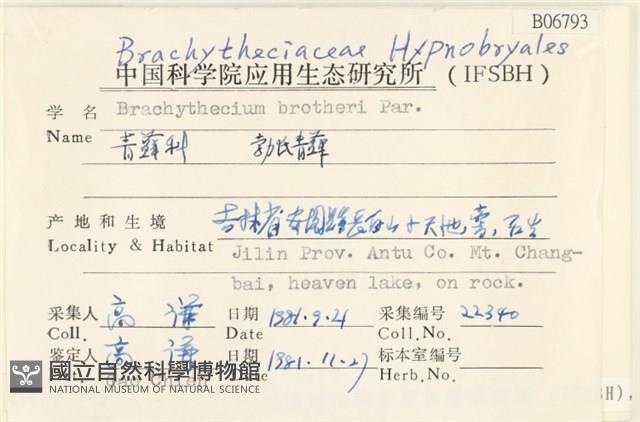 B06793
Brachytheciaceae Hypnobryales
中国科学院应用生态研究所 (IFSBH)
学名 Brachythecium brotheri Par.
Name 青藓科 勃氏青藓
产地和生境 吉林省安图县长白山小天池旁,石生
Locality & Habitat Jilin Prov. Antu Co. Mt. Chang-
bai, heaven lake, on rock.
采集人 高谦 日期 1981.9.21 采集编号 22340
Coll. Date Coll.No.
鉴定人 高谦 日期 1981.11.27 标本室编号
Herb.No.
國立自然科學博物館
NATIONAL MUSEUM OF NATURAL SCIENCE